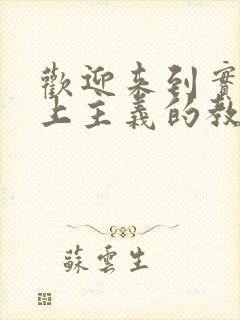 歡迎來到實
上主義的教
蘇雲生